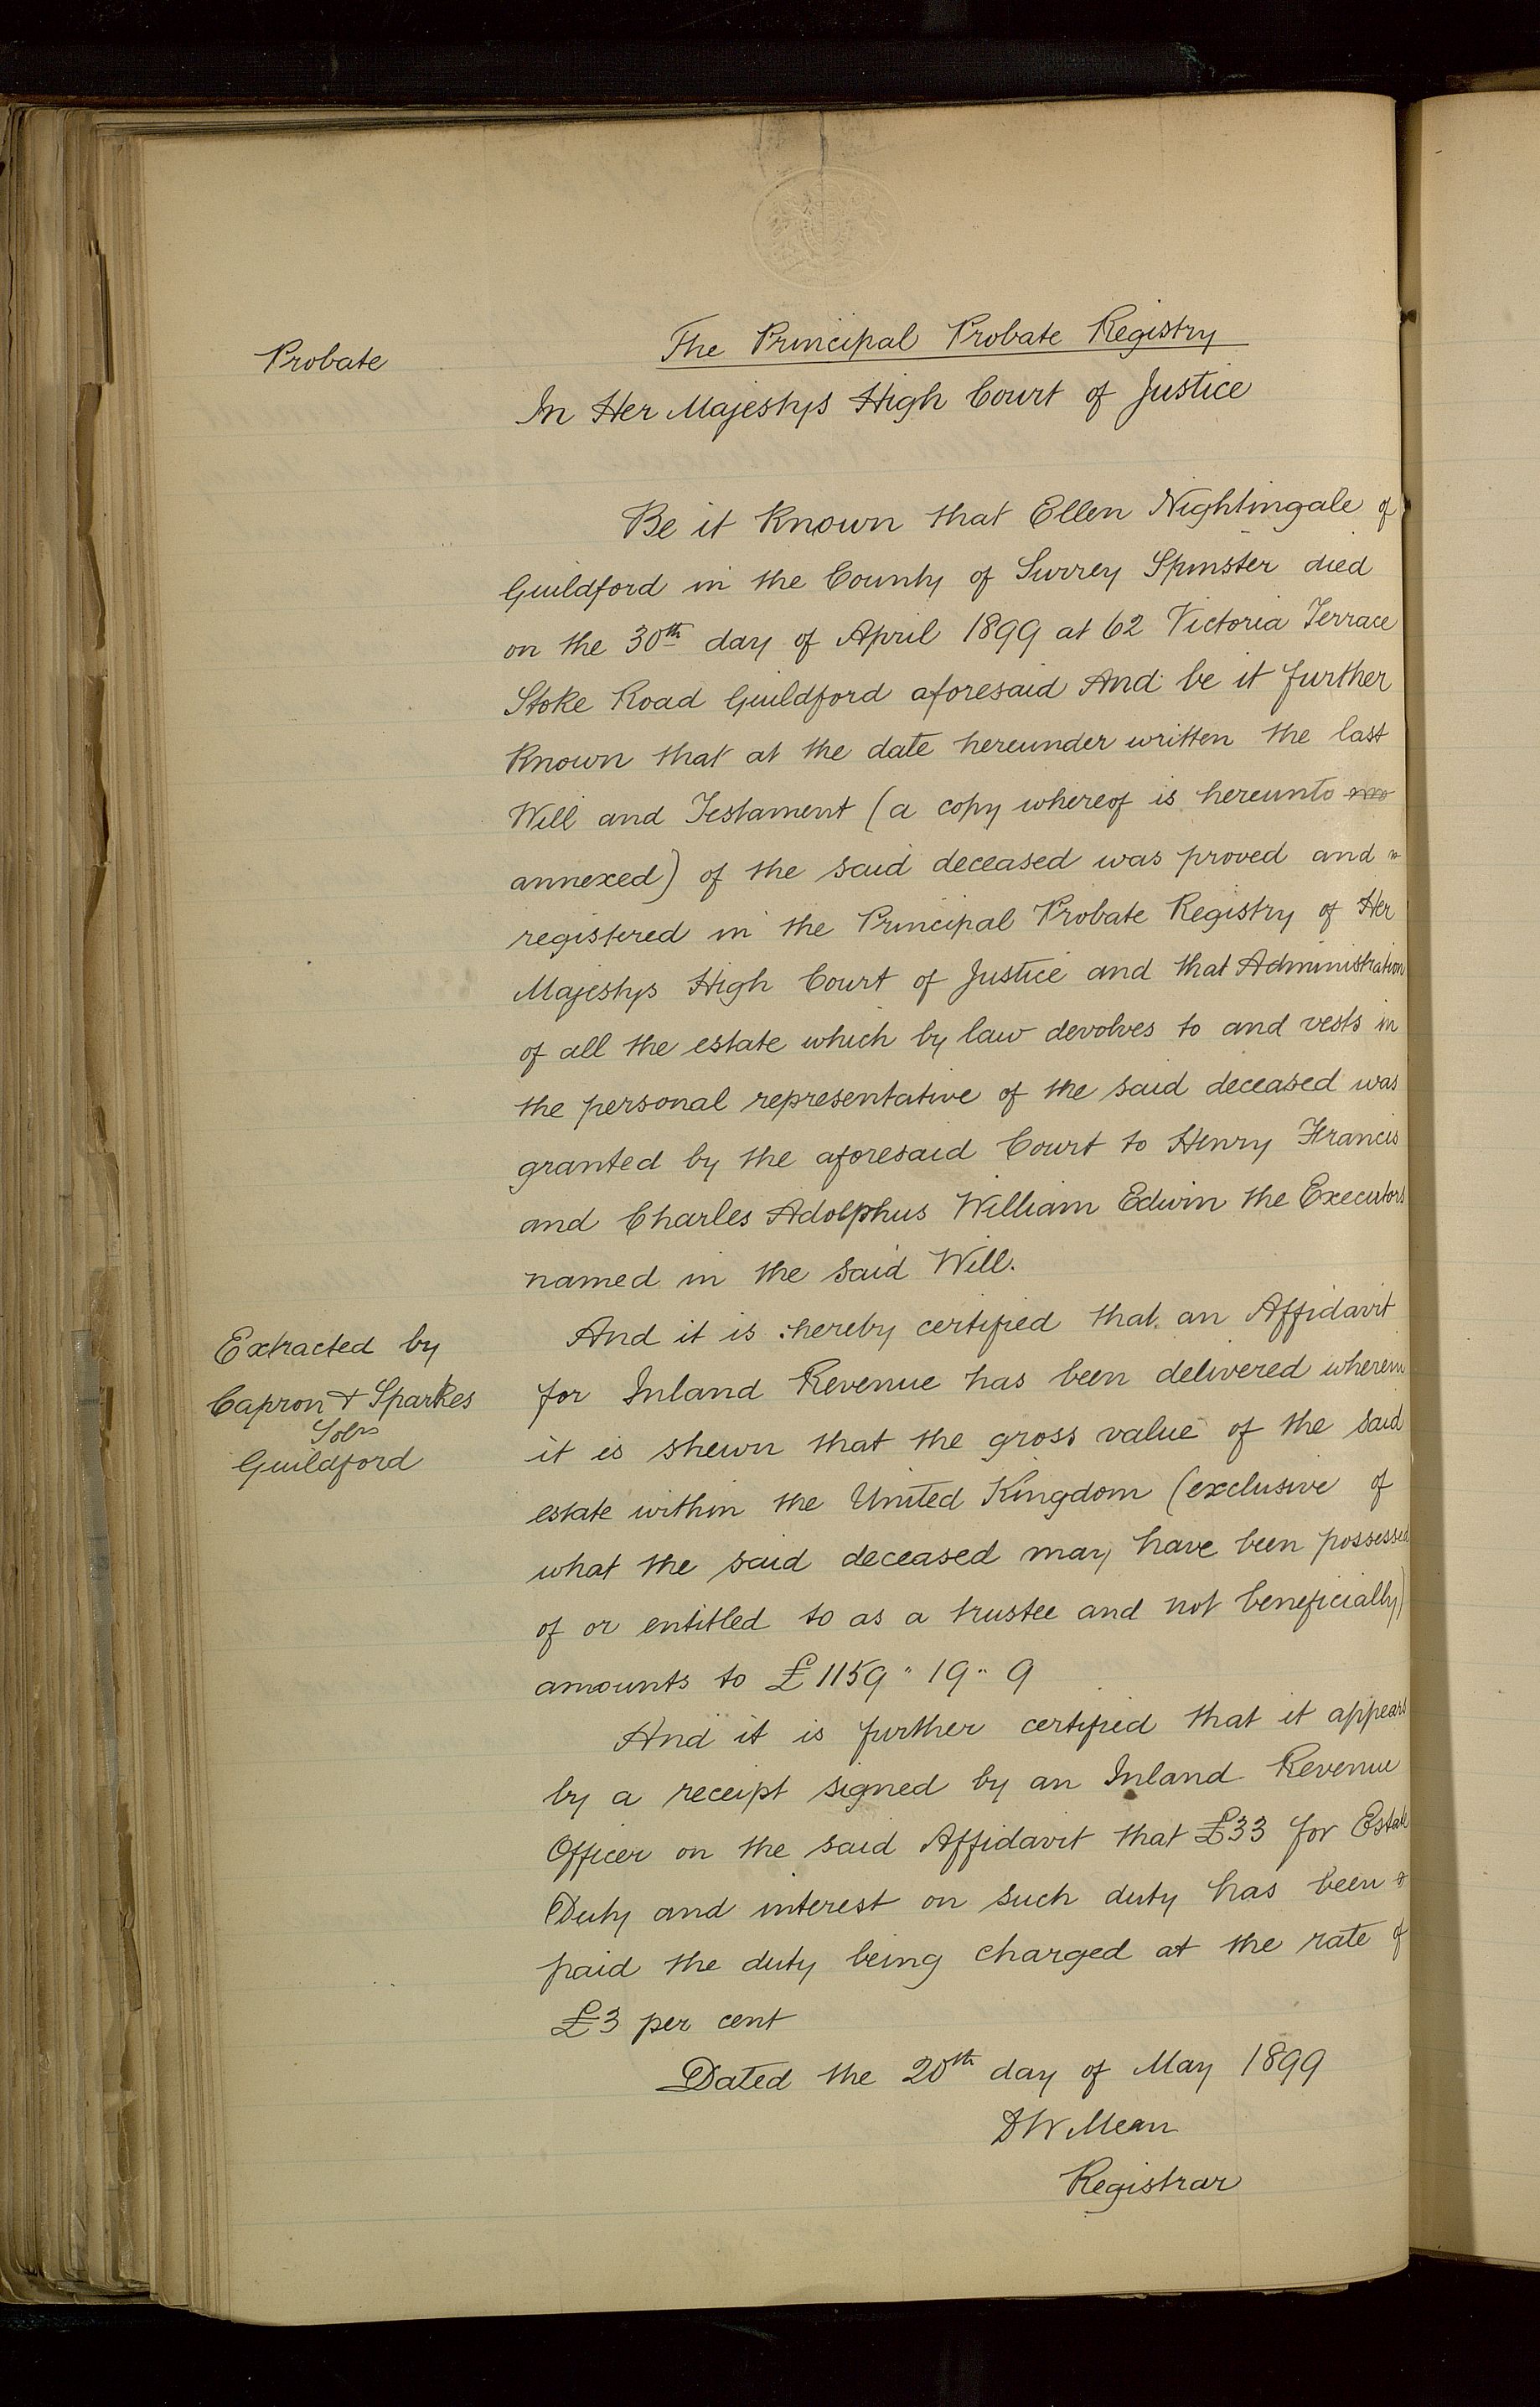 Probate
The Principal Probate Registry
In Her Majestys High Court of Justice
Be it known that Ellen Nightingale of
Guildford in the County of Surrey Spinster died
on the 30th day of April 1899 at 62 Victoria Terrace
Stoke Road Guildford aforesaid And be it further
known that at the date hereunder written the last
Will and Testament (a copy whereof is hereunto
annexed) of the said deceased was proved and
registered in the Principal Probate Registry of Her
Majestys High Court of Justice and that Administration
of all the estate which by law devolves to and vests in
the personal representative of the said deceased was
granted by the aforesaid Court to Henry Francis
and Charles Adolphus William Edwin the Executors
named in the said Will.
And it is hereby certified that an Affidavit
for Inland Revenue has been delivered wherein
it is shewn that the gross value of the said
estate within the United Kingdom (exclusive of
what the said deceased may have been possessed
of or entitled to as a trustee and not beneficially)
amounts to £1159 " 19 " 9
And it is further certified that it appears
by a receipt signed by an Inland Revenue
Officer on the said Affidavit that £33 for Estate
Duty and interest on such duty has been
paid the duty being charged at the rate of
£3 per cent
Dated the 20th day of May 1899
Registrar
Extracted by
Capron & Sparkes
Solrs
Guildford